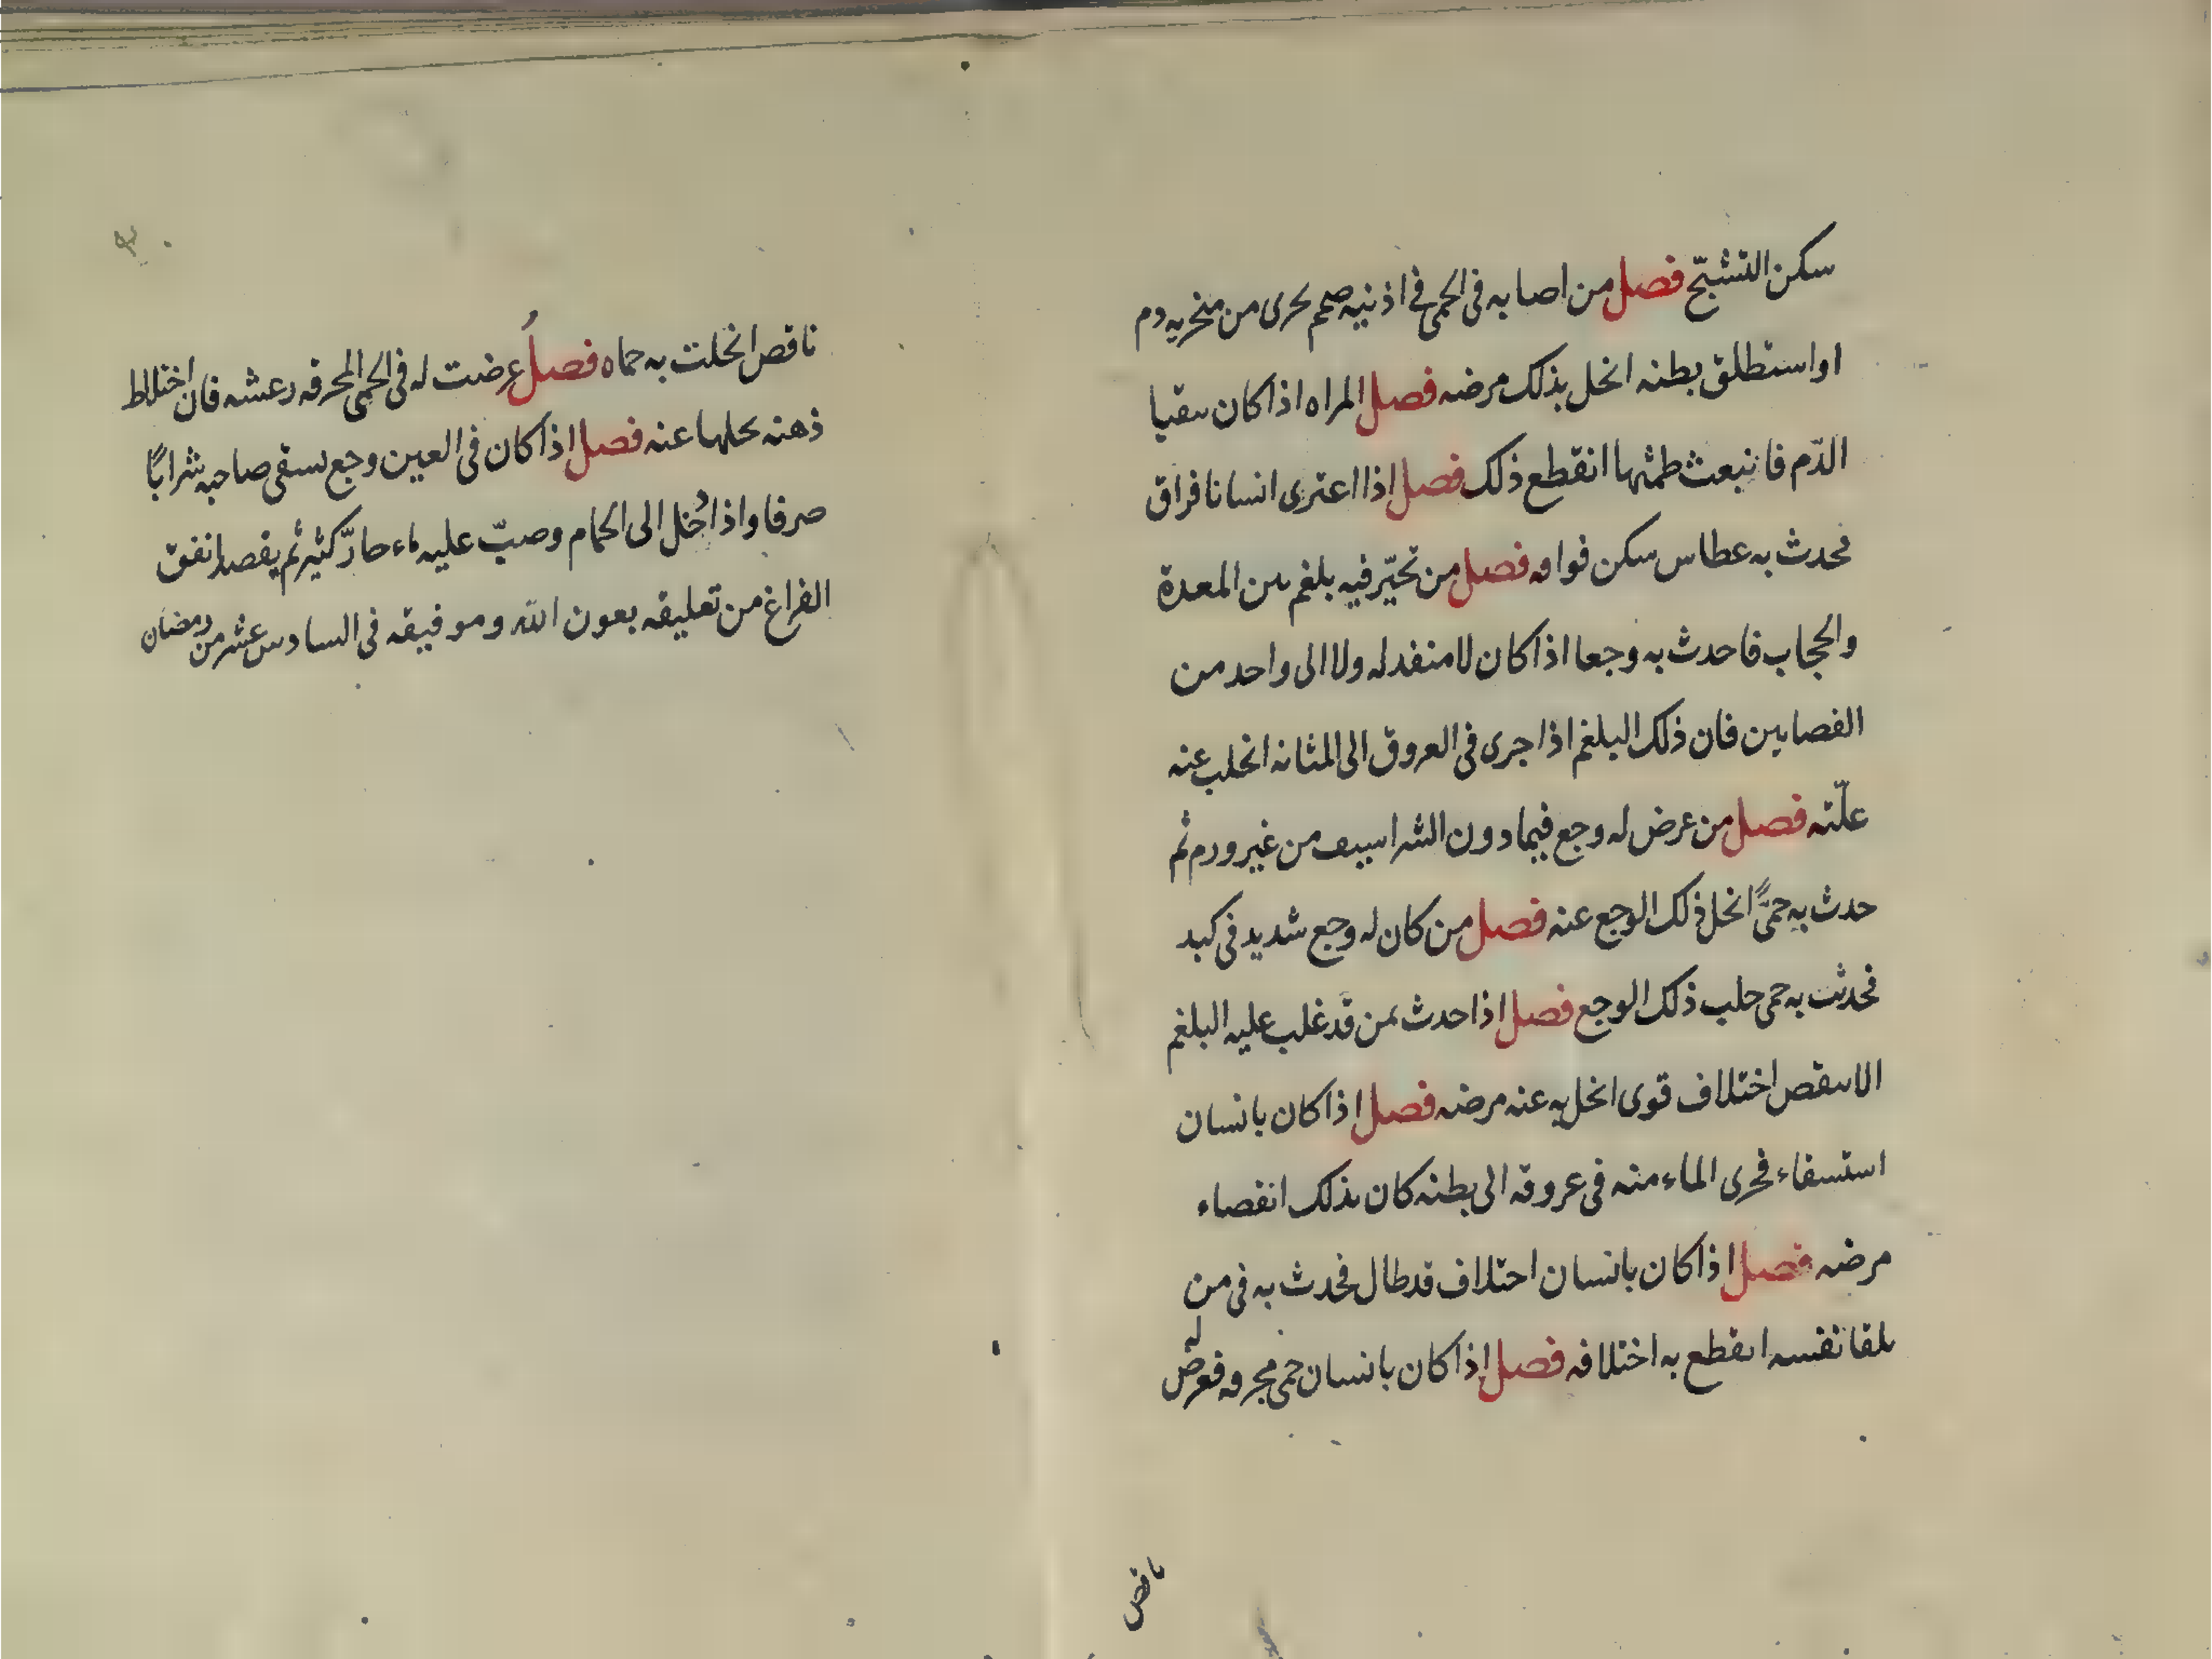 سكن التشنّج فصل من اصابه فى الحمى فى اذنيه صمم فجرى من منخريه دم
او استطلق بطنه انحل بذلك مرضه فصل المراه اذا كان ىىقيا
الدّم فانبعث طمثها انقطع ذلك فصل اذا اعترى انسانا فراق
فحدث به عطاس سكن فواقه فصل من تحيّر فيه بلغم بين المعدة
والحجاب فاحدث به وجعا اذا كان لا منفد له ولا الى واحد من
الفصايين فان ذلك البلغم اذا جرى فى العروق الى المثانه انحلت عنه
علّته فصل من عرض له وجع فيما دون الشراسيف من غير ورم ثم
حدث به حمىً انحل ذلك الوجع عنه فصل من كان له وجع شديد فى كبد
فحدثت به حمى حلت ذلك الوجع فصل اذا حدث بمن قد غلب عليه البلغم
الاىىقص اختلاف قوى انحل به عنه مرضه فصل اذا كان بانسان
استسقاء فجرى الماء منه فى عروقه الى بطنه كان بذلك انقضاء
مرضه فصل اذا كان بانسان اختلاف قد طال فحدث به فى من
تلقا نفسه انقطع به اختلافه فصل اذا كان بانسان حمى محرقه فعرض له
نافص
ناقص انحلت به حماه فصل عرضت له فى الحمى المحرقه رعشه فان اختلاط
ذهنه يحلها عنه فصل اذا كان فى العين وجع يسقى صاحبه شرابًا
صرفا واذا دُخل الى الحمام وصبّ عليه ماء حارّ كثير ثم يفصد انفق
الفراغ من تعليقه بعون الله وموفيقه فى السادس عشر من رمضان